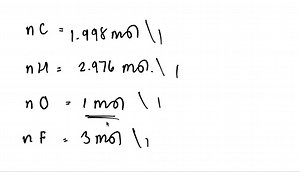 n C = 1.998 mol \ 1
n H = 2.976 mol. \ 1
n O = 1 mol \ 1
n F = 3 mol \ 1